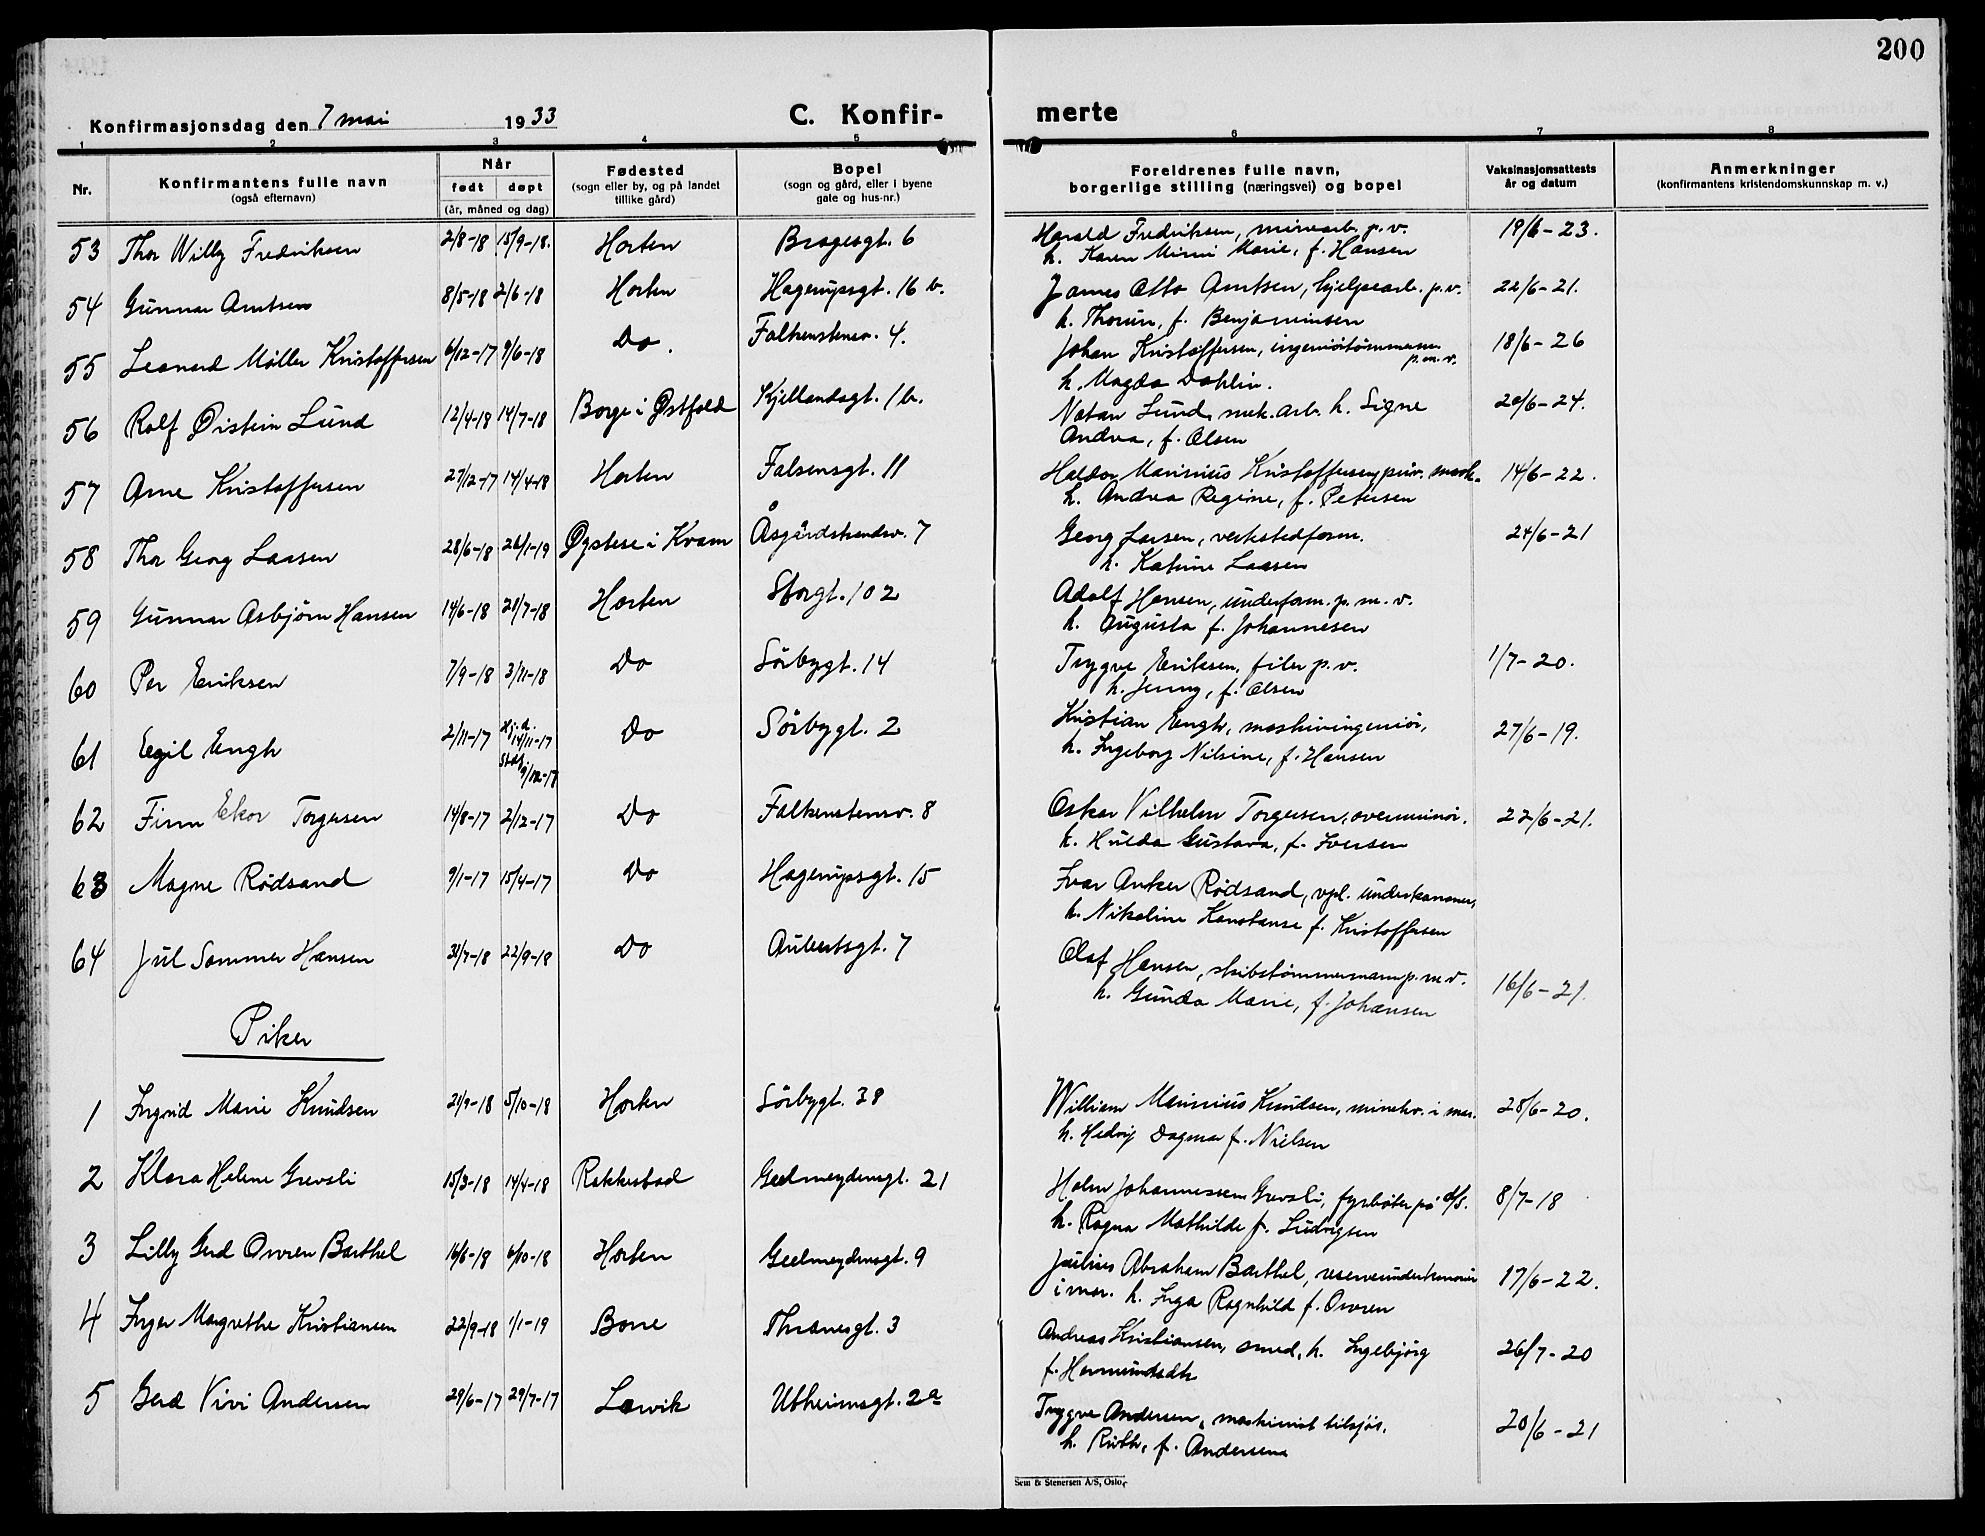 200
Konfirmasjonsdag den 7 mai 1933 C. Konfir- merte
1 2 3 4 5 6 7 8
Nr. Konfirmantens fulle navn (også efternavn) Når født døpt (år, måned og dag) Fødested (sogn eller by, og på landet tillike gård) Bopel (sogn og gård, eller i byene gate og hus-nr.) Foreldrenes fulle navn, borgerlige stilling (næringsvei) og bopel Vaksinasjonsattests år og datum Anmerkninger (konfirmantens kristendomskunnskap m. v.)
53 Thor Willy Fredriksen 2/8-18 15/9-18. Horten Bragesgt. 6 Harald Fredriksen, minearb. p.v. 19/6-23.
h. Karen Mimi Marie, f. Hansen
54 Gunnar Arntsen 8/5-18 2/6-18 Horten Hagerupsgt. 16 b. James Otto Arntsen, hjelpearb. p.v. 22/6-21.
h. Thorun, f. Benjaminsen
55 Leonard Møller Kristoffersen 6/12-17 9/6-18 Do. Falkenstensv. 4. Johan Kristoffersen, ingeniörtömmermn p.m.v. 18/6-26
h. Magda Dahlin.
56 Rolf Øistein Lund 12/4-18 14/7-18 Borge i Østfold Kjellandsgt. 1b. Natan Lund, mek. arb. h. Signe 20/6-24.
Andrea, f. Olsen
57 Arne Kristoffersen 27/12-17 14/4-18 Horten Falsensgt. 11 Haldor Marinius Kristoffersen, priv. mask. 14/6-22.
h. Andrea Regine, f. Petersen
58 Thor Georg Laasen 28/6-18 26/1-19 Øystese i Kvam Åsgårdstrandsv. 7 Georg Larsen, verkstedform. 24/6-21
h. Katrine Laasen
59 Gunnar Asbjørn Hansen 14/6-18 21/7-18 Horten Storgt. 102 Adolf Hansen, underform. p.m.v.
h. Augusta f. Johannesen
60 Per Eriksen 7/9-18 3/11-18 Do Sörbygt. 14 Trygve Eriksen, filer p.v. 1/7-20.
h. Jenny, f. Olsen
61 Egil Engh 2/11-17 Hj.d. 14/11-17 Do Sörbygt. 2 Kristian Engh, maskiningeniör, 27/6-19.
h. Ingeborg Nilsine, f. Hansen
62 Finn Ekor Torgersen 14/8-17 2/12-17 Do Falkenstensv. 8 Oskar Vilhelm Torgersen, overminör. 22/6-21.
h. Hulda Gustava, f. Iversen
63 Magne Rödsand 9/1-17 15/4-17 Do Hagerupsgt. 15 Ivar Anker Rödsand, vpl. underkanoner,
h. Nikoline Konstanse f. Kristoffersen
64 Jul Sommer Hansen 31/7-18 22/9-18 Do Aubertsgt. 7 Olaf Hansen, skibstömmermann p.m.v. 16/6-21.
h. Gunda Marie, f. Johansen
Piker
1 Ingrid Marie Knudsen 21/9-18 5/10-18 Horten Sörbygt. 38 William Marinius Knudsen, minekv. i mar. 28/6-20.
h. Hedvig Dagmar f. Nielsen
2 Klara Helene Grevsli 15/3-18 14/4-18 Rakkestad Geelmeydensgt. 21 Holm Johannessen Grevsli, fyrböter på d/s. 8/7-18
h. Ragna Mathilde f. Ludvigsen
3 Lilly Gerd Ovren Barthel 16/6-18 6/10-18 Horten Geelmeydensgt. 9 Julius Abraham Barthel, reserveunderkanonér 17/6-22.
i mar. h. Inga Ragnhild f. Ovren
4 Inger Margrethe Kristiansen 22/9-18 1/1-19 Borre Thranesgt. 3 Andreas Kristiansen, smed, h. Ingebjörg 26/7-20
f. Hermundsdtr
5 Gerd Vivi Andersen 29/6-17 29/7-17 Larvik Utheimsgt. 2a Trygve Andersen, maskinist tilsjös, 20/6-21
h. Ruth, f. Andersen
Sem & Stenersen A/S, Oslo.